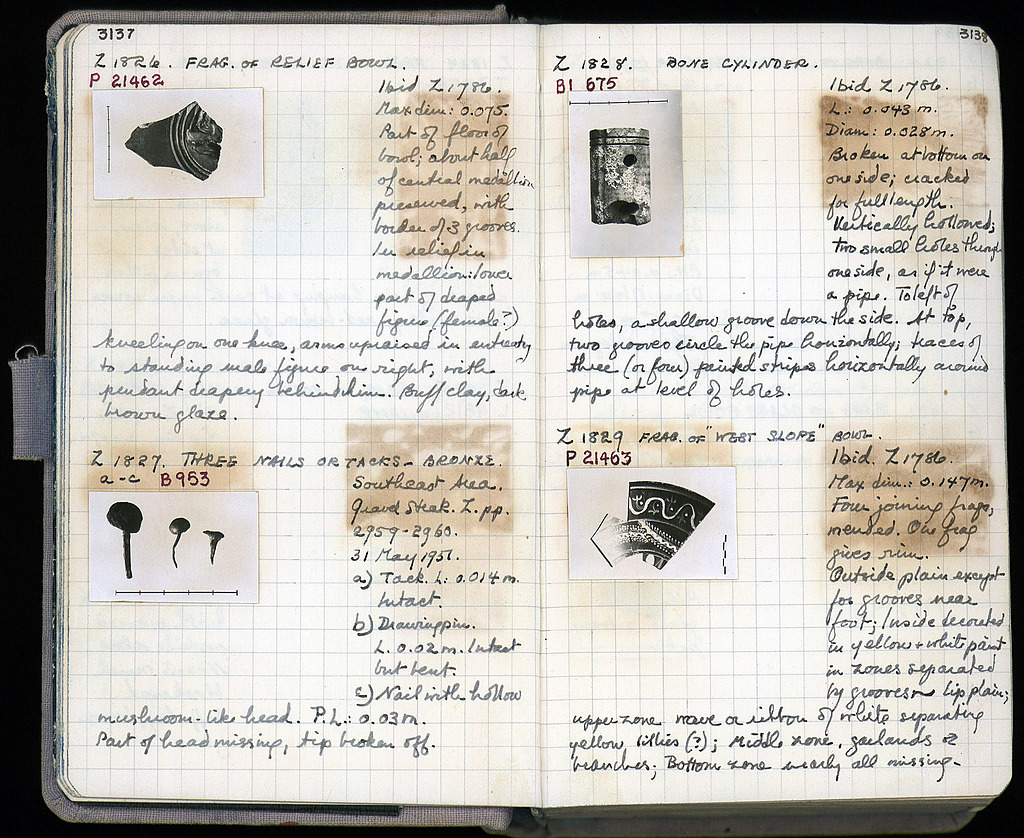 3137
Z 1826. FRAG. OF RELIEF BOWL.
P 21462
Ibid Z 1786.
Max dim: 0.075.
Part of floor of
bowl; about half
of central medallion
preserved, with
border of 3 grooves.
In relief in
medallion: lower
part of draped
figure (female?)
kneeling on one knee, arms upraised in entreaty
to standing male figure on right, with
pendant drapery behind him. Buff clay, dark
brown glaze.
Z 1827. THREE NAILS OR TACKS - BRONZE.
a-c B 953
Southeast Area.
Gravel Streak. Z. pp.
2959-2960.
31 May 1951.
a) Tack. L: 0.014 m.
Intact.
b) Drawing pin.
L. 0.02 m. Intact
but bent.
c) Nail with hollow
mushroom-like head. P.L.: 0.03 m.
Part of head missing, tip broken off.
3138
Z 1828. BONE CYLINDER.
BI 675
Ibid Z 1786.
L.: 0.043 m.
Diam: 0.028 m.
Broken at bottom on
one side; cracked
for full length.
Vertically hollowed;
two small holes through
one side, as if it were
a pipe. To left of
holes, a shallow groove down the side. At top,
two grooves circle the pipe horizontally; traces of
three (or four) painted stripes horizontally around
pipe at level of holes.
Z 1829 FRAG. OF "WEST SLOPE" BOWL.
P 21463
Ibid. Z 1786.
Max dim.: 0.147 m.
Four joining frags,
mended. One frag
gives rim.
Outside plain except
for grooves near
foot; Inside decorated
in yellow + white paint
in zones separated
by grooves - lip plain;
upper zone wave or ribbon of white separating
yellow lillies (?); Middle zone, garlands or
branches; Bottom zone nearly all missing-